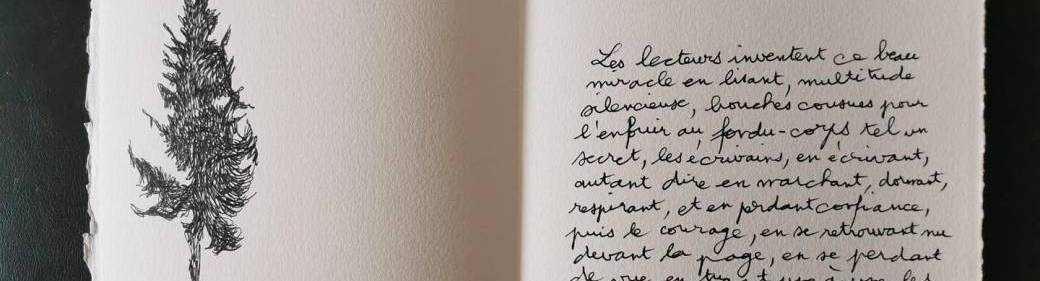 Les lecteurs inventent ce beau
miracle en lisant, multitude
silencieuse, bouches cousues pour
l'enfouir au fondu-corps tel un
secret, les écrivains, en écrivant,
autant dire en marchant, dormant,
respirant, et en perdant confiance,
puis le courage, en se retrouvant nu
devant la page, en se perdant
de vue en